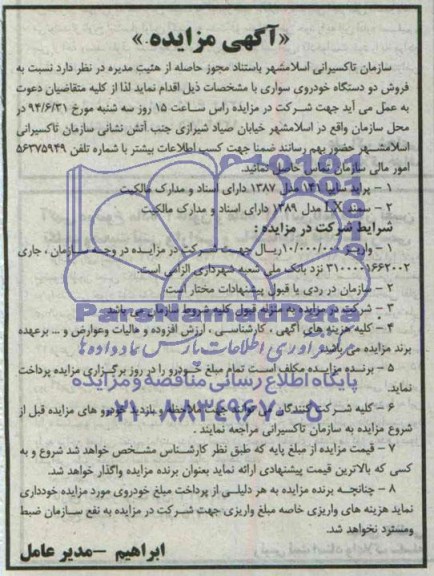 «آگهی مزایده»
سازمان تاکسیرانی اسلامشهر باستناد مجوز حاصله از هئیت مدیره در نظر دارد نسبت به
فروش دو دستگاه خودروی سواری با مشخصات ذیل اقدام نماید لذا از کلیه متقاضیان دعوت
به عمل می آید جهت شرکت در مزایده راس ساعت ۱۵ روز سه شنبه مورخ ۹۴/۶/۳۱ در
محل سازمان واقع در اسلامشهر خیابان صیاد شیرازی جنب آتش نشانی سازمان تاکسیرانی
اسلامشهر حضور بهم رسانند ضمنا جهت کسب اطلاعات بیشتر با شماره تلفن ۵۶۳۷۵۹۴۹
امور مالی سازمان تماس حاصل نمائید.
۱ – پراید سایپا ۱۴۱ مدل ۱۳۸۷ دارای اسناد و مدارک مالکیت
۲ – سمند LX مدل ۱۳۸۹ دارای اسناد و مدارک مالکیت
شرایط شرکت در مزایده :
۱ – واریز ۱۰/۰۰۰/۰۰۰ریال جهت شرکت در مزایده در وجه سازمان ، جاری
۳۱۰۰۰۰۱۶۶۲۰۰۲ نزد بانک ملی شعبه شهرداری الزامی است.
۲ – سازمان در ردی یا قبول پیشنهادات مختار است
۳ – شرکت در مزایده به منزله قبول کلیه شروط سازمان می باشد.
۴ – کلیه هزینه های آگهی ، کارشناسی ، ارزش افزوده و مالیات وعوارض و ... برعهده
برند مزایده می باشد.
۵ – برنده مزایده مکلف است تمام مبلغ خودرو را در روز برگزاری مزایده پرداخت
نماید.
۶ – کلیه شرکت کنندگان می توانند جهت ملاحظه و بازدید خودرو های مزایده قبل از
شروع مزایده به سازمان تاکسیرانی مراجعه نمایند .
۷ – قیمت مزایده از مبلغ پایه که طبق نظر کارشناس مشخص خواهد شد شروع و به
کسی که بالاترین قیمت پیشنهادی ارائه نماید بعنوان برنده مزایده واگذار خواهد شد.
۸ – چنانچه برنده مزایده به هر دلیلی از پرداخت مبلغ خودروی مورد مزایده خودداری
نماید هزینه های واریزی خاصه مبلغ واریزی جهت شرکت در مزایده به نفع سازمان ضبط
ومسترد نخواهد شد.
ابراهیم – مدیر عامل
پایگاه اطلاع رسانی مناقصه و مزایده
۰۲۱-۸۸۳۴۹۶۷۰-۵